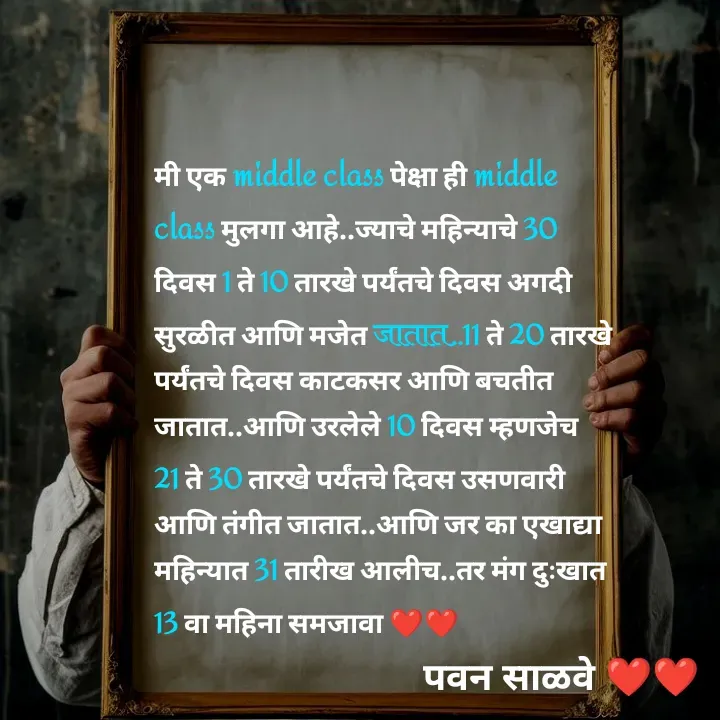 मी एक middle class पेक्षा ही middle
class मुलगा आहे..ज्याचे महिन्याचे 30
दिवस 1 ते 10 तारखे पर्यंतचे दिवस अगदी
सुरळीत आणि मजेत जातात..11 ते 20 तारखे
पर्यंतचे दिवस काटकसर आणि बचतीत
जातात..आणि उरलेले 10 दिवस म्हणजेच
21 ते 30 तारखे पर्यंतचे दिवस उसणवारी
आणि तंगीत जातात..आणि जर का एखाद्या
महिन्यात 31 तारीख आलीच..तर मंग दुःखात
13 वा महिना समजावा ❤️❤️
पवन साळवे ❤️❤️